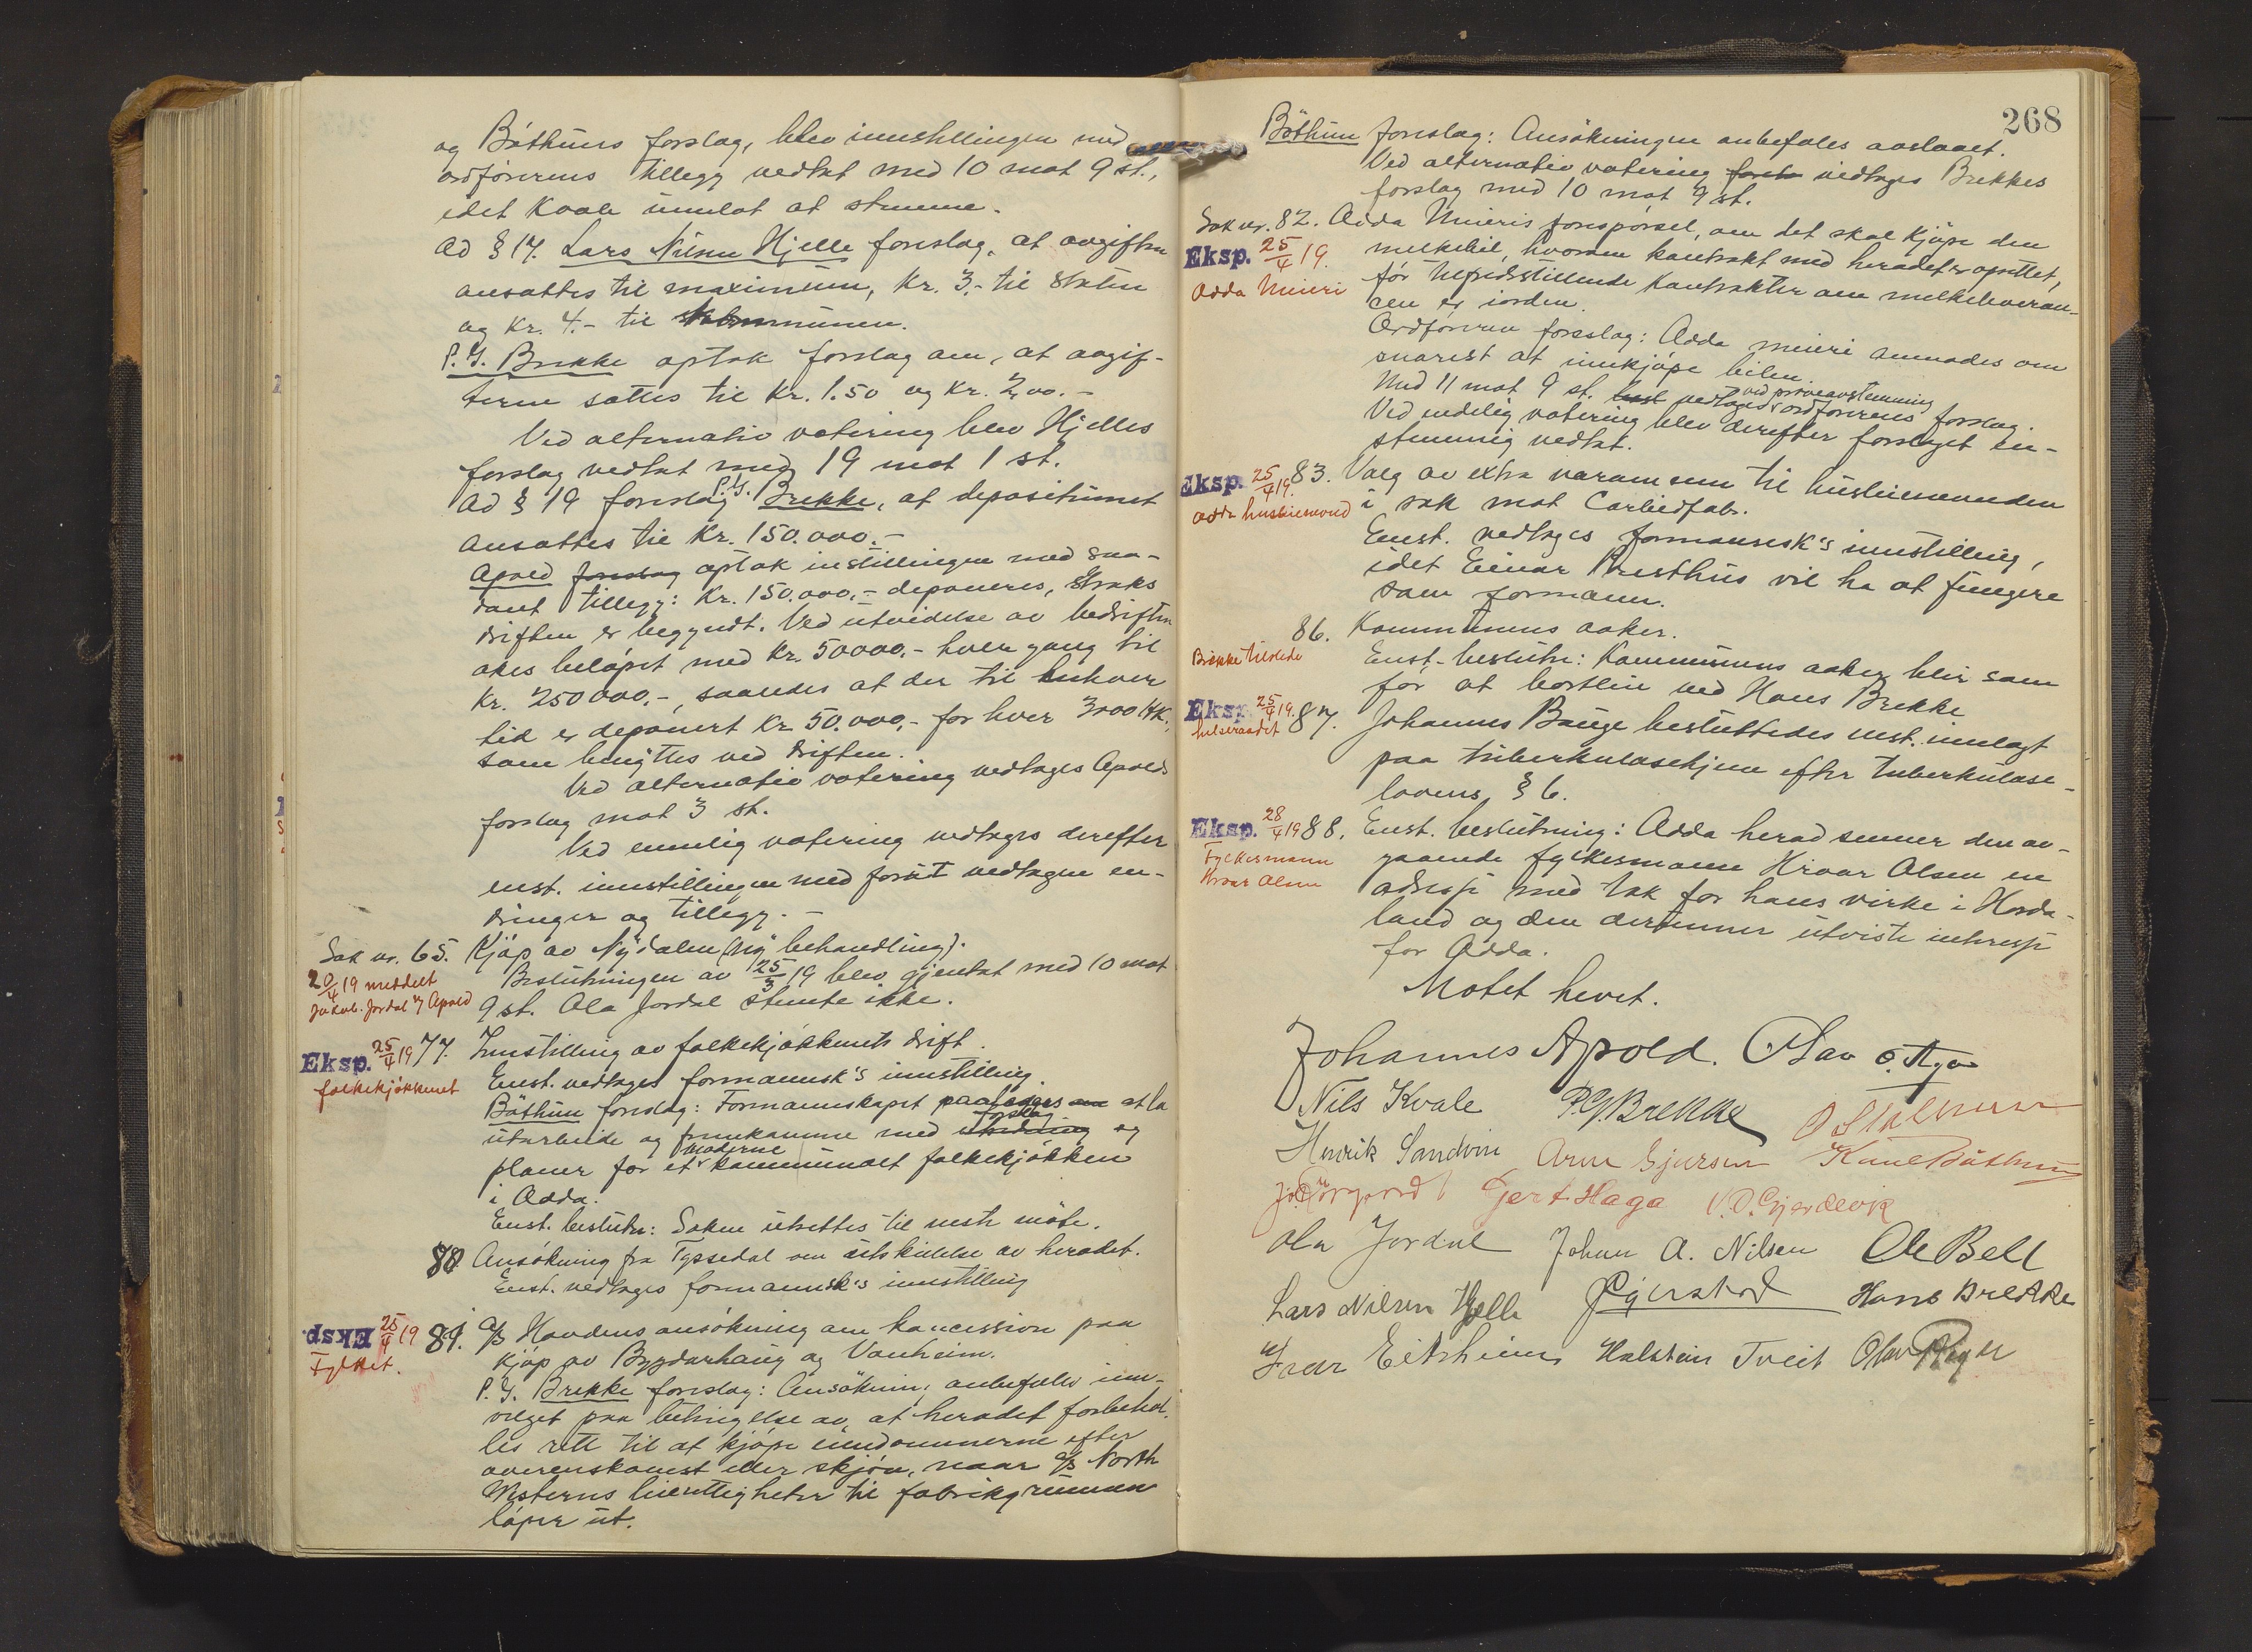 og Böthuns forslag, blev innstillingen med
ordförerens tillegg vedtat med 10 mot 9 st.,
idet Kvale unnlot at stemme.
Ad § 17. Lars Nilsen Hjelle foreslog, at avgiften
ansattes til maximum, kr. 3,- til staten
og kr. 4.- til kommunen.
P. G. Brekke optok forslag om, at avgif-
terne sattes til kr. 1.50 og kr. 2,00.-
Ved alternativ votering blev Hjelles
forslag vedtat med 19 mot 1 st.
Ad § 19 foreslog P.G. Brekke, at depositumet
ansattes til kr. 150.000.-
Apold foreslog optok instillingen med saa-
dant tillegg: Kr. 150.000,- deponeres, straks
driften er begyndt. Ved utvidelse av bedriften
økes beløpet med kr. 50000,- hver gang til
kr. 250000,-, saaledes at der til enhver
tid er deponert kr. 50.000,- for hver 3000 HK,
som benyttes ved driften.
Ved alternativ votering vedtages Apolds
forslag mot 3 st.
Ved ennelig votering vedtages derefter
enst. innstillingen med forut vedtagne en-
dringer og tillegg.-
Sak nr. 65. Kjöp av Nydalen (Ny behandling).
20/4 19 meddelt
Jakob Jordal & Apold
Beslutningen av 25/3 19 blev gjentat med 10 mot
9 st. Ola Jordal stemte ikke.
Eksp. 25/4 19 77. Innstilling av folkekjökkenets drift.
folkekjökkenet
Enst. vedtages formannsk's innstilling.
Böthun foreslog: Formannskapet paalegges om at la
utarbeide og fremkomme med utredning forslag og
planer for et moderne kommunalt folkekjökken
i Odda.
Enst. beslutn: Saken utsettes til neste möte.
80 Ansökning fra Tyssedal om utskillelse av heradet.
Enst. vedtages formannsk's innstilling
Eksp. 25/4 19 81. A/S Haudens ansökning om koncession paa
Fylket.
kjöp av Bygdarhaug og Vanheim.
P. G. Brekke foreslog: Ansökning anbefales inn-
vilget paa betingelse av, at heradet forbehol-
les rett til at kjöpe eiendommerne efter
overenskomst eller skjön, naar A/S North
Westerns leierettigheter til fabrikgrunnen
löper ut.
268
Böthun foreslog: Ansökningen anbefales avslaaet.
Ved alternativ votering vedtages Brekkes
forslag med 10 mot 9 st.
Sak nr. 82. Odda Meieris forespörsel, om det skal kjöpe den
Eksp. 25/4 19.
Odda Meieri
melkebil, hvorom kontrakt med heradet er opsettet,
för tilfredsstillende kontrakter om melkeleveran-
cen er iorden.
Ordföreren foreslog: Odda meieri anmodes om
snarest at innkjöpe bilen.
Med 11 mot 9 st. vedtages ved pröveavstemning ordförerens forslag.
Ved endelig votering blev derefter forslaget en-
stemmig vedtat.
Eksp. 25/4 19. 83. Valg av extra varamenn til husleienevnden
Odda husleienevnd
i sak mot Carbidfabr.
Enst. vedtages formannsk's innstilling,
idet Einar Presthus vil ha at fungere
som formann.
86. Kommunens aaker.
Brekke tilstede
Enst. beslutn: Kommunens aaker blir som
för at bortleie ved Hans Brekke
Eksp. 25/4 19. 87. Johannes Bauge besluttedes enst. innlagt
helseraadet
paa tuberkulosehjem efter tuberkulose-
lovens § 6.
Eksp. 28/4 19 88. Enst. beslutning: Odda herad senner den av-
Fylkesmann
Hroar Olsen
gaaende fylkesmann Hroar Olsen en
adresse med tak for hans virke i Horda-
land og den derunner utviste interesse
for Odda.
Motet hevet.
Johannes Apold. Olav O. Aga
Nils Kvale P.G. Brekke
Henrik Sandvin Arne Gjersen Knut Böthun
Gert Haga N.O. Gjerdevik
Ola Jordal Johan A. Nilsen Ole Bell
Lars Nilsen Hjelle Hans Brekke
Ivar Eitrheim Halstein Tveit